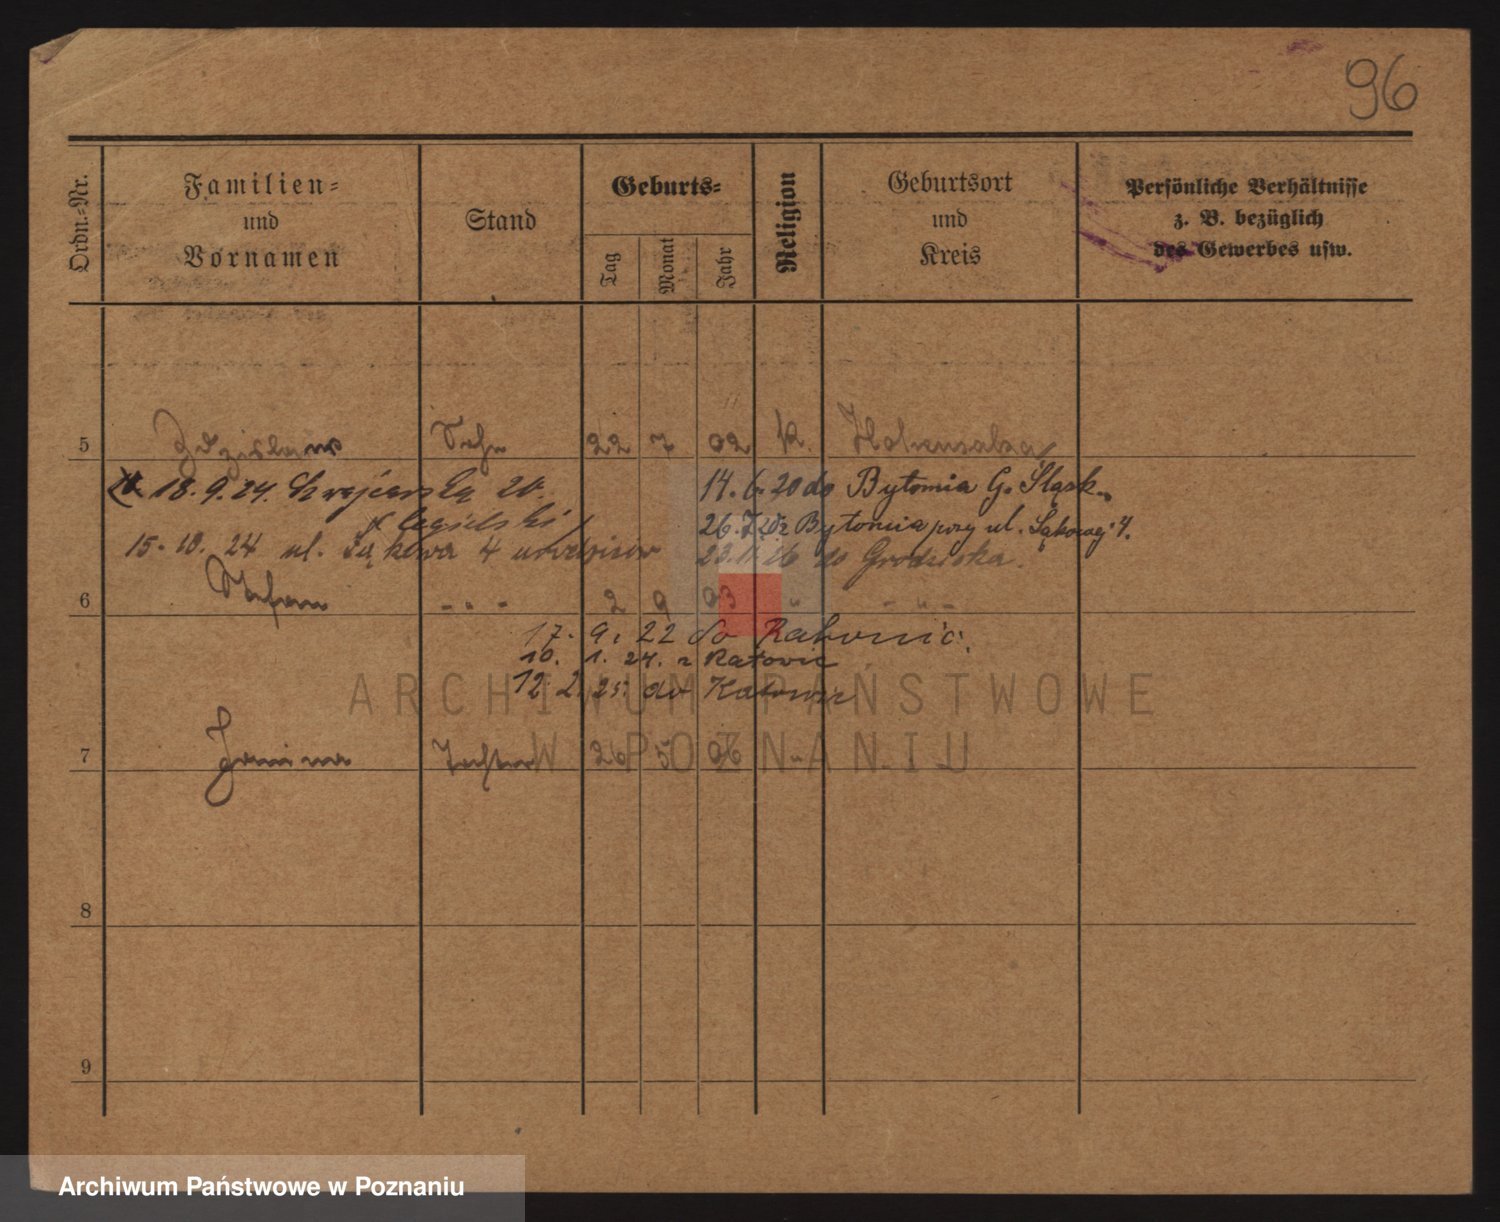 96
Ordn.-Nr.
Familien-
und
Vornamen
Stand
Geburts-
Tag
Monat
Jahr
Religion
Geburtsort
und
Kreis
Persönliche Verhältnisse
z. B. bezüglich
des Gewerbes usw.
5 Zdzislaw Sohn 22 7 02 k. Hohensalza
18.9.24. 20. 14. 6. 20 do Bytomia G. Śląsk.
Cegielski 26.7 z Bytomia przy ul. Łąkowej 4.
15. 10. 24 ul. Łąkowa 4 23.11.26 do Grodziska.
6 Stefan - " - 2 9 03 " - " -
17. 9. 22 do Katowic.
10. 1. 24. z Katowic
12. 2. 25. do Katowic
7 Janina Tochter 26 5 06 " - " -
8
9
ARCHIWUM PAŃSTWOWE
W POZNANIU
Archiwum Państwowe w Poznaniu